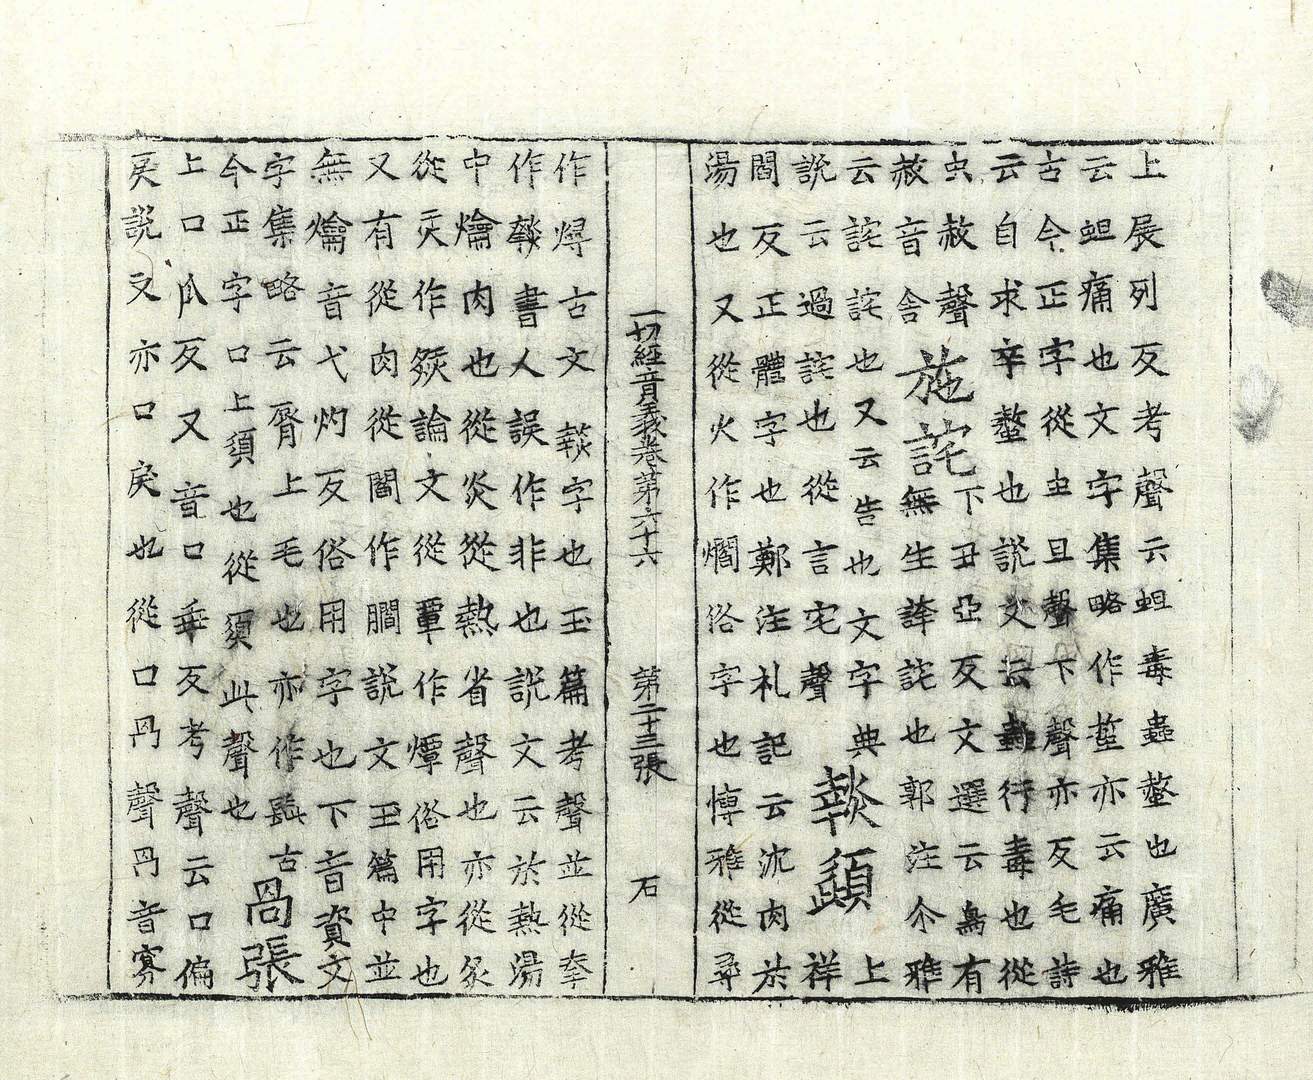 上展列反考聲云蛆毒蟲螫也廣雅
云蛆痛也文字集略作䖧亦云痛也
古今正字從虫旦聲下聲亦反毛詩
云自求辛螫也説文云蟲行毒也從
虫赦聲
赦音舍
施詫
下丑亞反文選云烏有
無生誇詫也郭注尒雅
云詫詫也又云告也文字典
説云過詫也從言宅聲
㷟䪿
上祥
閻反正體字也鄭注札記云沈肉於
湯也又從火作燗俗字也博雅從尋
一切經音義卷第六十六 第二十三張 石
作燖古文㷟字也玉篇考聲並從𡘋
作㷟書人誤作非也説文云於熱湯
中爚肉也從炎從熱省聲也亦從炙
從灻作㷋論文從覃作燂俗用字也
又有從肉從閻作䐄説文玉篇中並
無爚音弋灼反俗用字也下音資文
字集略云脣上毛也亦作髭古
今正字口上須也從須此聲也
咼張
上口瓜反又音口垂反考聲云口偏
戾説文亦口戾也從口冎聲冎音寡